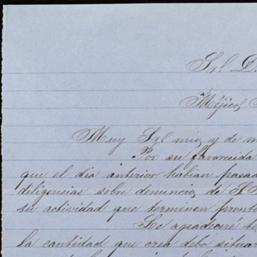 Srl. D.
Méjico,
Muy Srl. mio y de m
Por su favorecida
que el dia anterior habian pasad
diligencias sobre denuncio, de
su actividad que terminen pront
Le agradeceré
la cantidad que crea debo situar